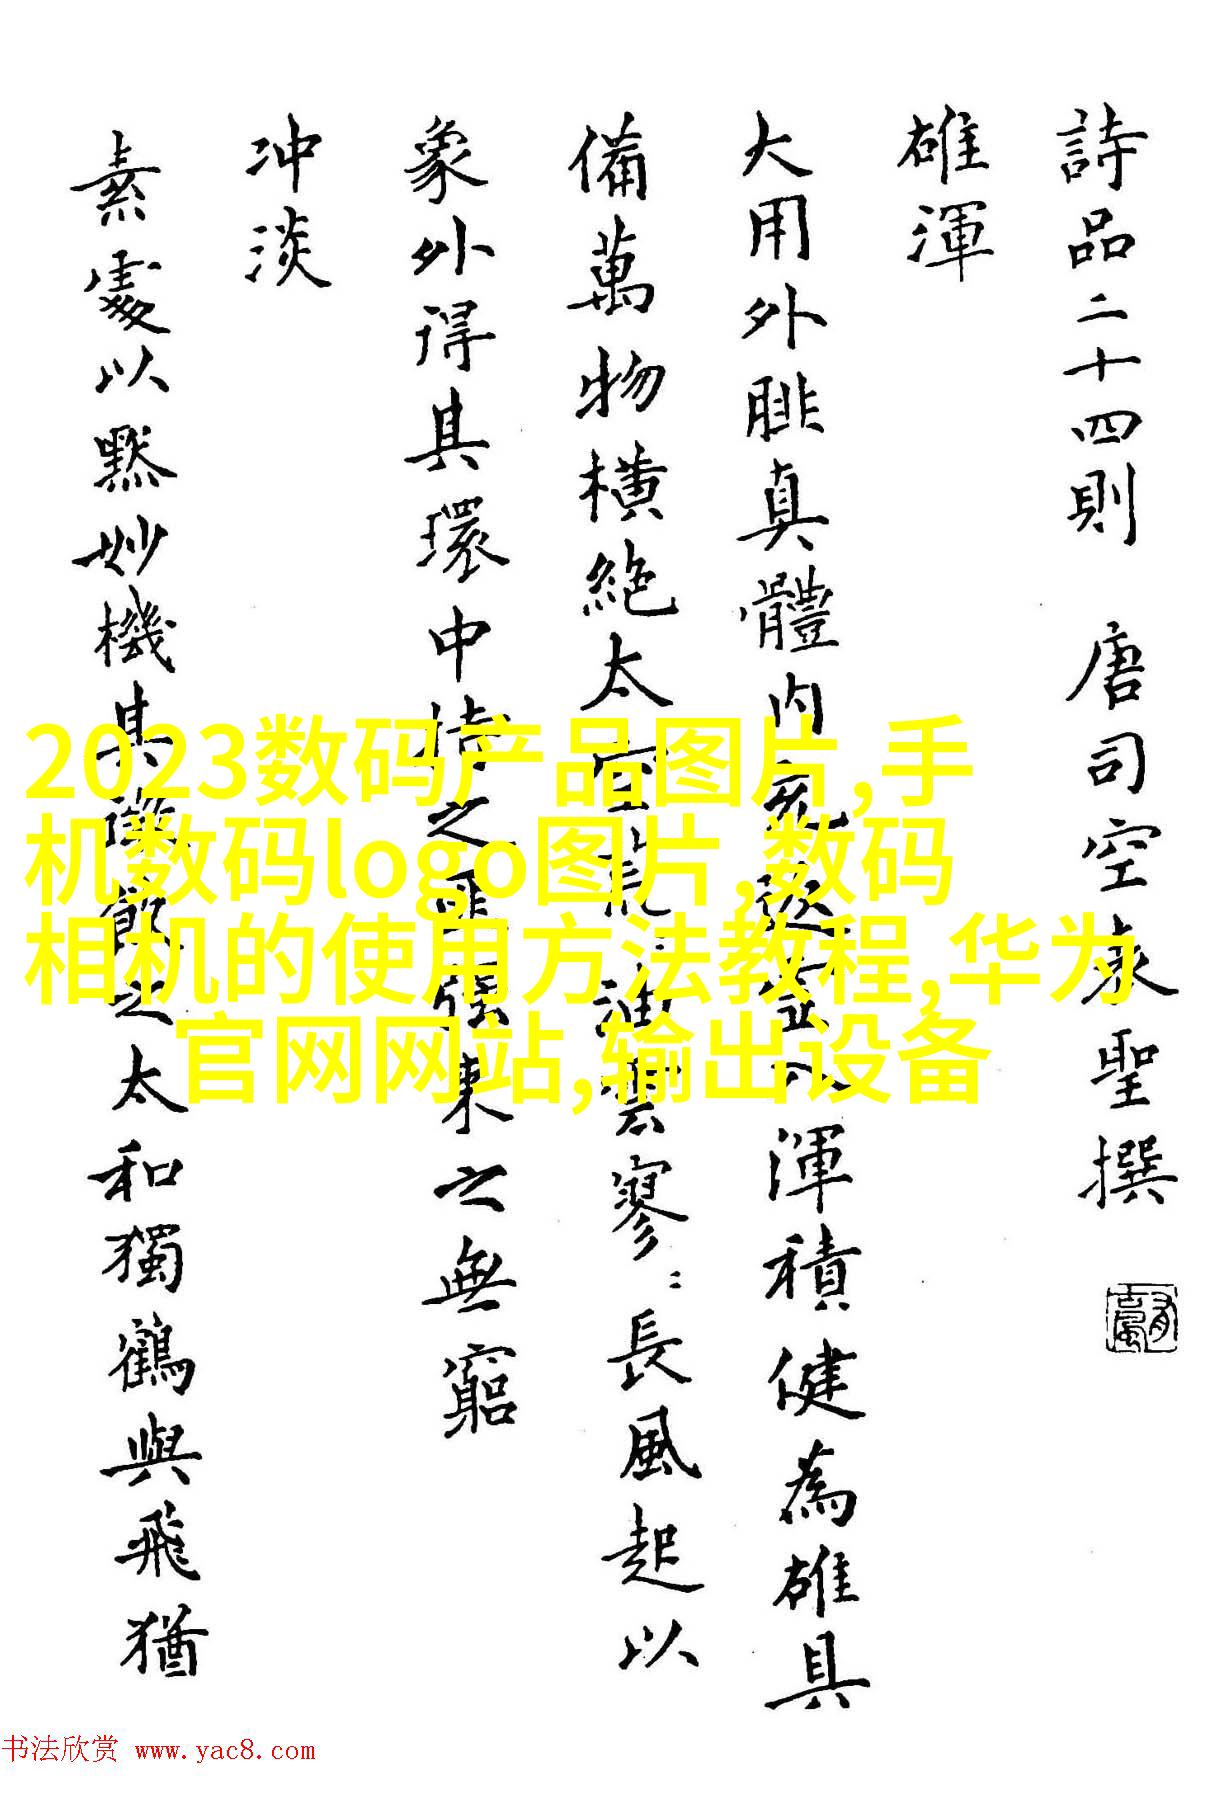 詩品二十四則 唐司空表聖撰
雄渾
大用外腓真體内充返虛入渾積健為雄具
備萬物橫絶太空荒〻油雲寥〻長風起以
象外得其環中持之匪强来之無窮
冲淡
素處以默妙機其微飲之太和獨鶴與飛猶
2023数码产品图片,手
机数码logo图片,数码
相机的使用方法教程,华为
官网网站,输出设备
书法欣赏 www.yac8.com